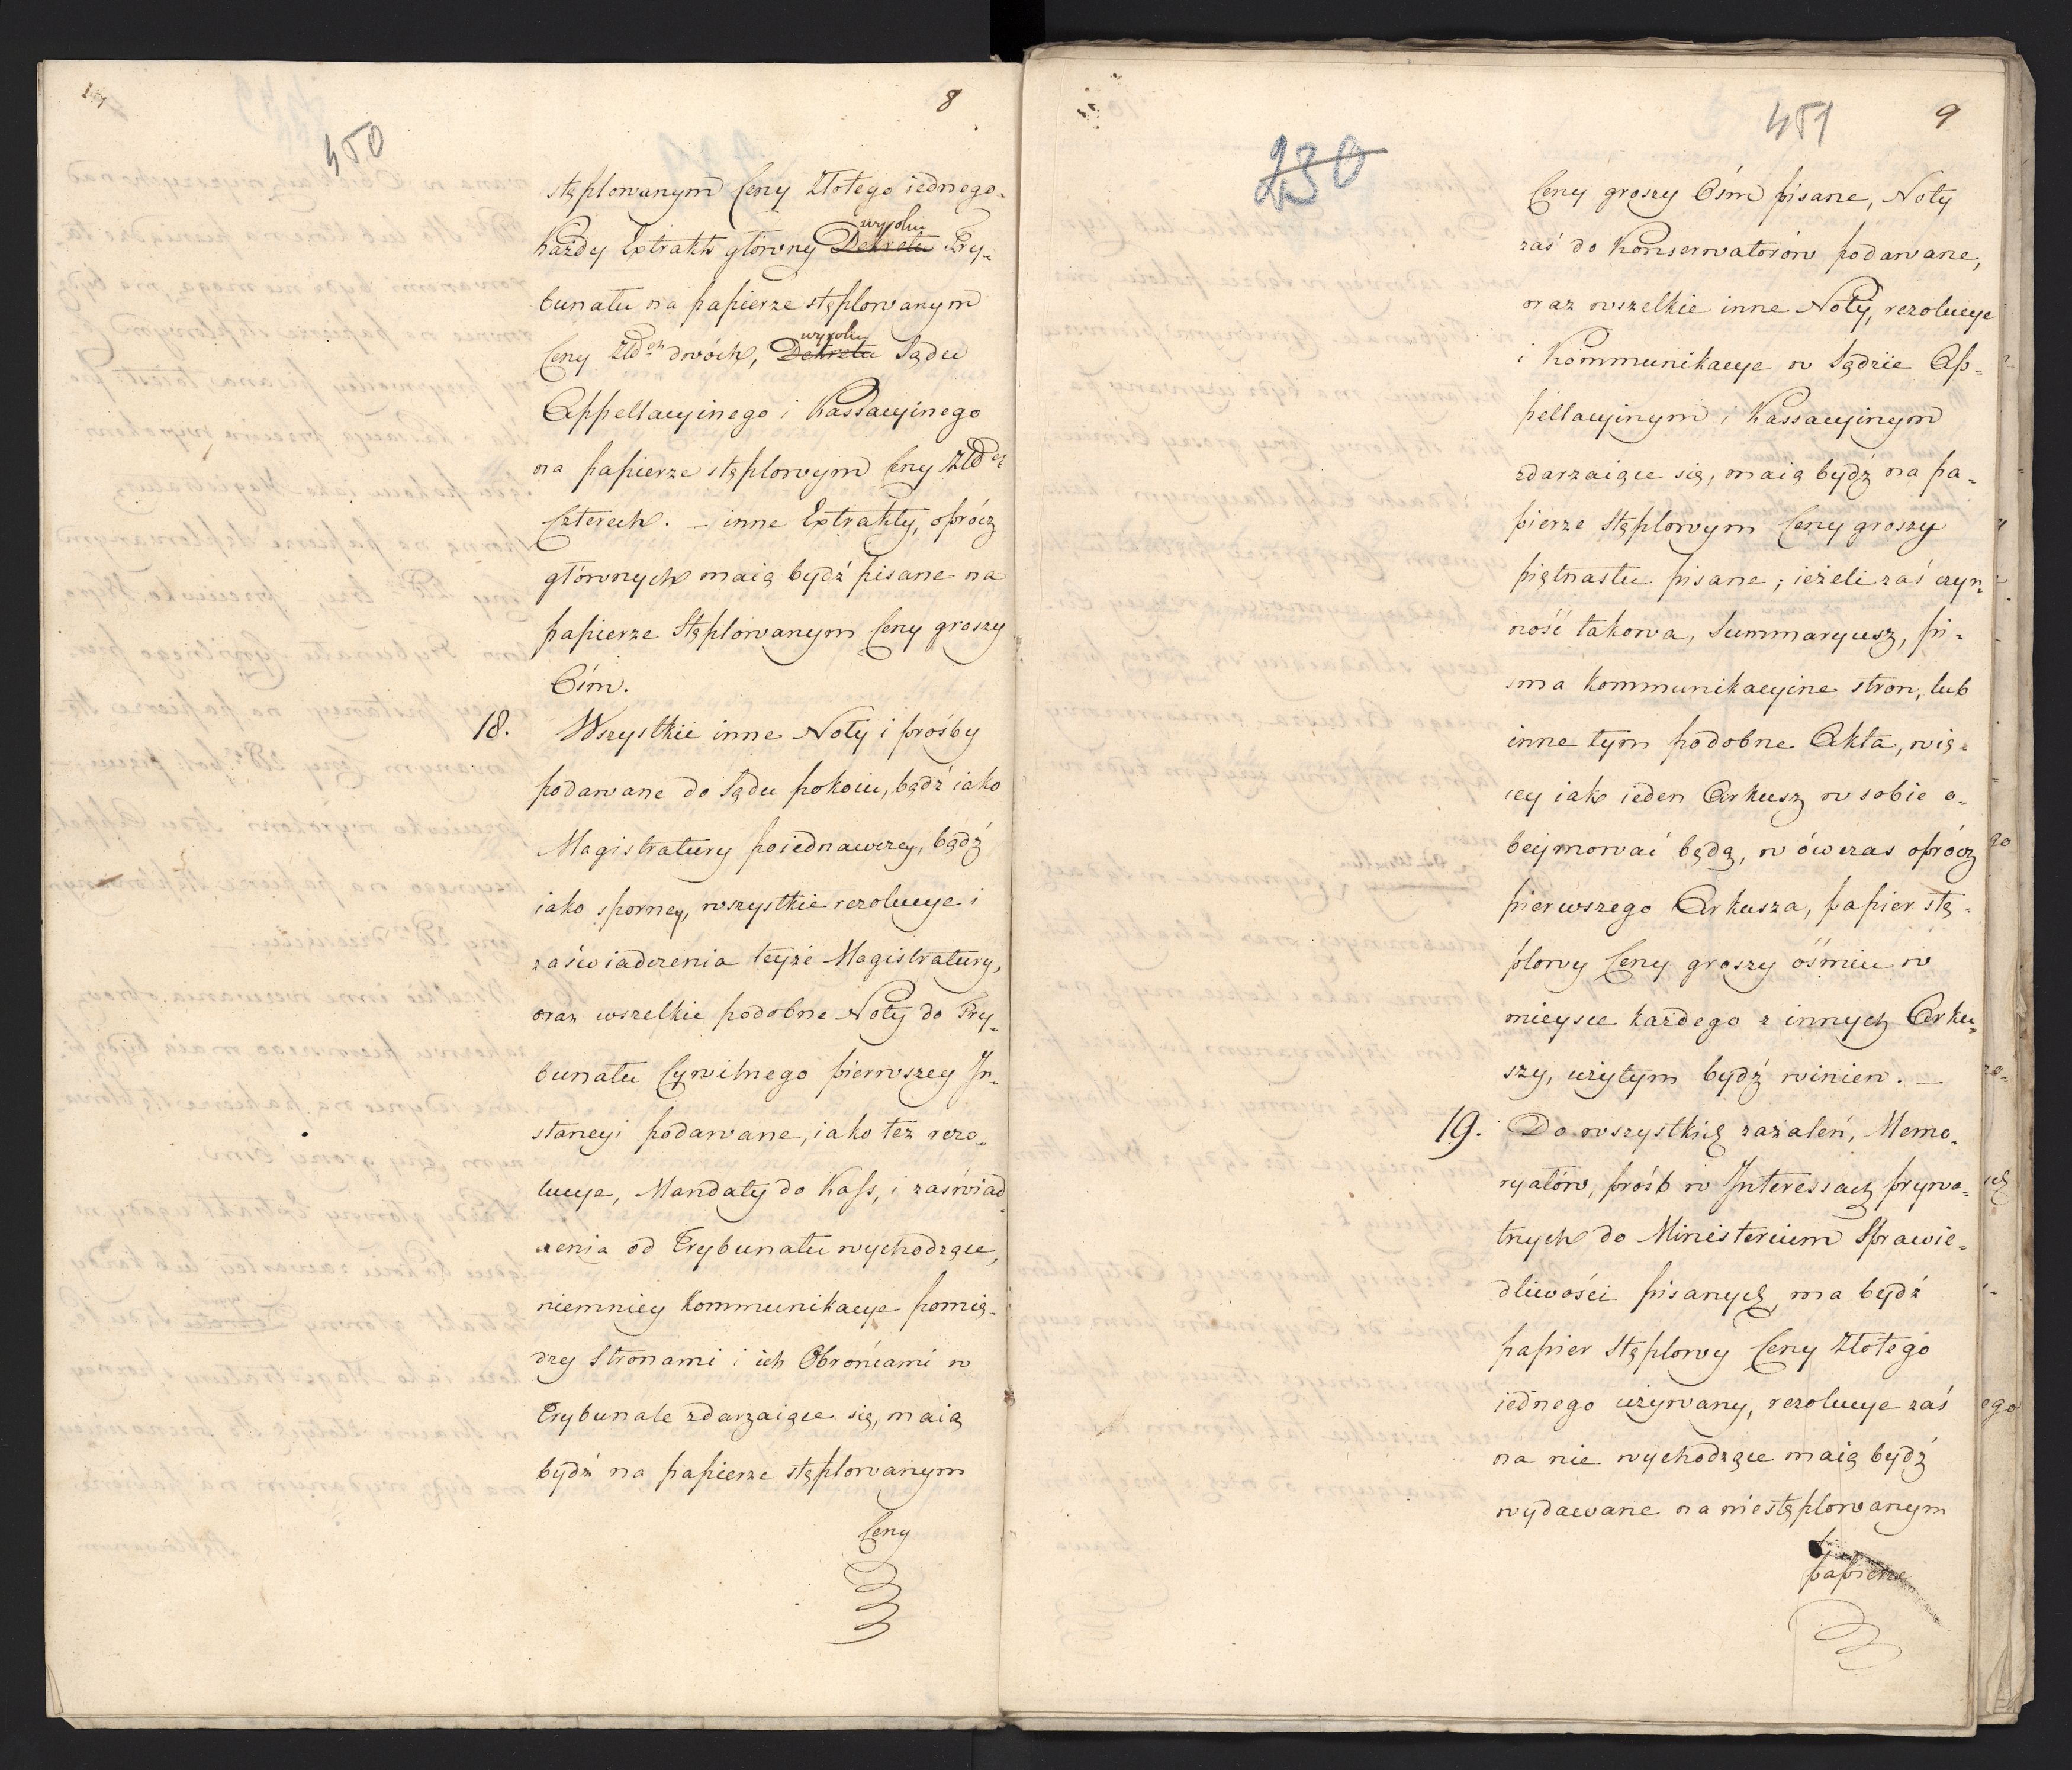 450
8
stęplowanym Ceny Złotego iednego.
wyroku
Każdy Extrakt główny Dekretu Try-
bunału na papierze stęplowanym
wyroku
Ceny Złch dwóch, Dekretu Sądu
Appellacyinego i Kassacyinego
na papierze stęplowym Ceny Złch
Czterech. — inne Extrakty, oprócz
głównych maią bydź pisane na
papierze Stęplowanym Ceny groszy
Ośm.
18. Wszystkie inne Noty i prośby
podawane do Sądu pokoiu, bądź iako
Magistratury poiednawczey, bądź
iako sporney, wszystkie rezolucye i
zaświadczenia teyże Magistratury,
oraz wszelkie podobne Noty do Try-
bunału Cywilnego pierwszey In-
stancyi podawane, iako też rezo-
lucye, Mandaty do Kass, i zaświad
czenia od Trybunału wychodzące,
niemniey Kommunikacye pomię-
dzy Stronami i ich Obrońcami w
Trybunale zdarzaiące się, maią
bydź na papierze stęplowanym
Ceny
230
451
9
Ceny groszy Ośm pisane, Noty
zaś do Konserwatorów podawane,
oraz wszelkie inne Noty, rezolucye
i Kommunikacye w Sądzie Ap-
pellacyinym i Kassacyinym
zdarzaiące się, maią bydź na pa-
pierze Stęplowym Ceny groszy
piętnastu pisane; ieżeli zaś czyn-
ność takowa, Summaryusz, pi-
sma kommunikacyine stron, lub
inne tym podobne Akta, wię-
cey iak ieden Arkusz w sobie o-
beymować będą, w ówczas oprócz
pierwszego Arkusza, papier stę-
plowy Ceny groszy ośmiu w
mieysce każdego z innych Arku-
szy, użytym bydź winien. —
19. Do wszystkich zażaleń, Memo-
ryałów, próśb w Interessach prywa-
tnych do Ministerium Sprawie-
dliwości pisanych, ma bydź
papier Stęplowy Ceny Złotego
iednego używany, rezolucye zaś
na nie wychodzące maią bydź
wydawane na niestęplowanym
papierze
go
ego